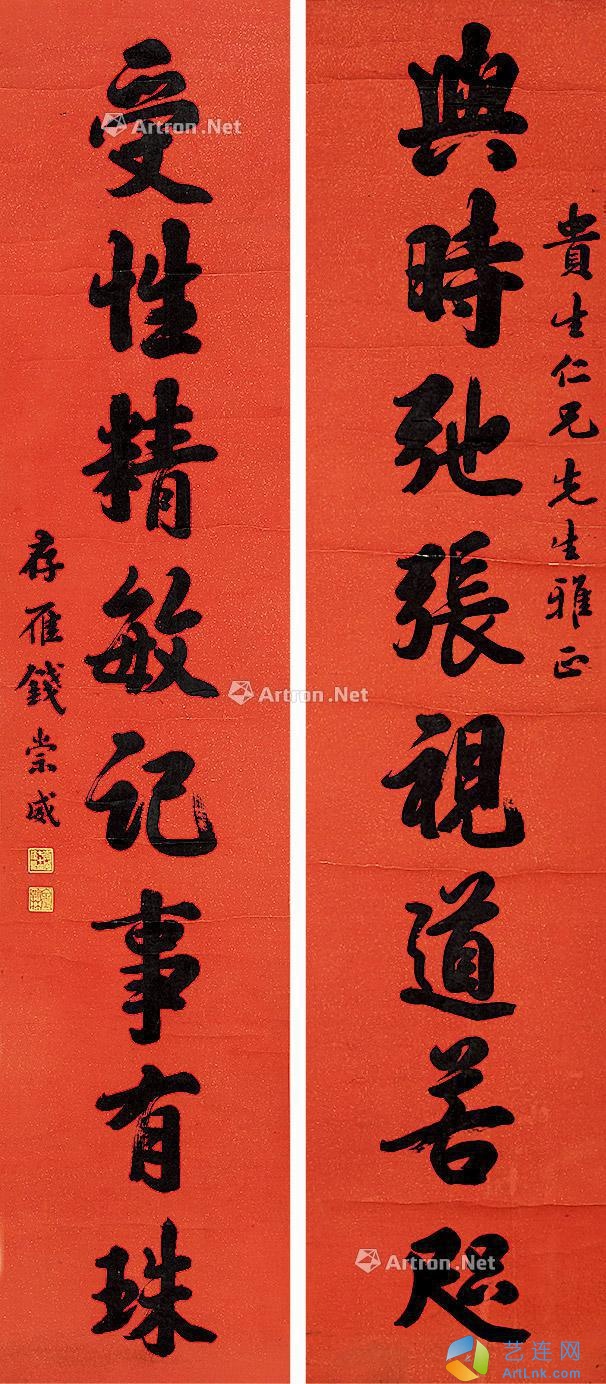 貴生仁兄先生雅正
與時弛張視道若咫
受性精敏記事有珠
存雁錢崇威
Artron.Net
Artron.Net
Artron.Net
Artron.Net
艺连网
ArtLnk.com